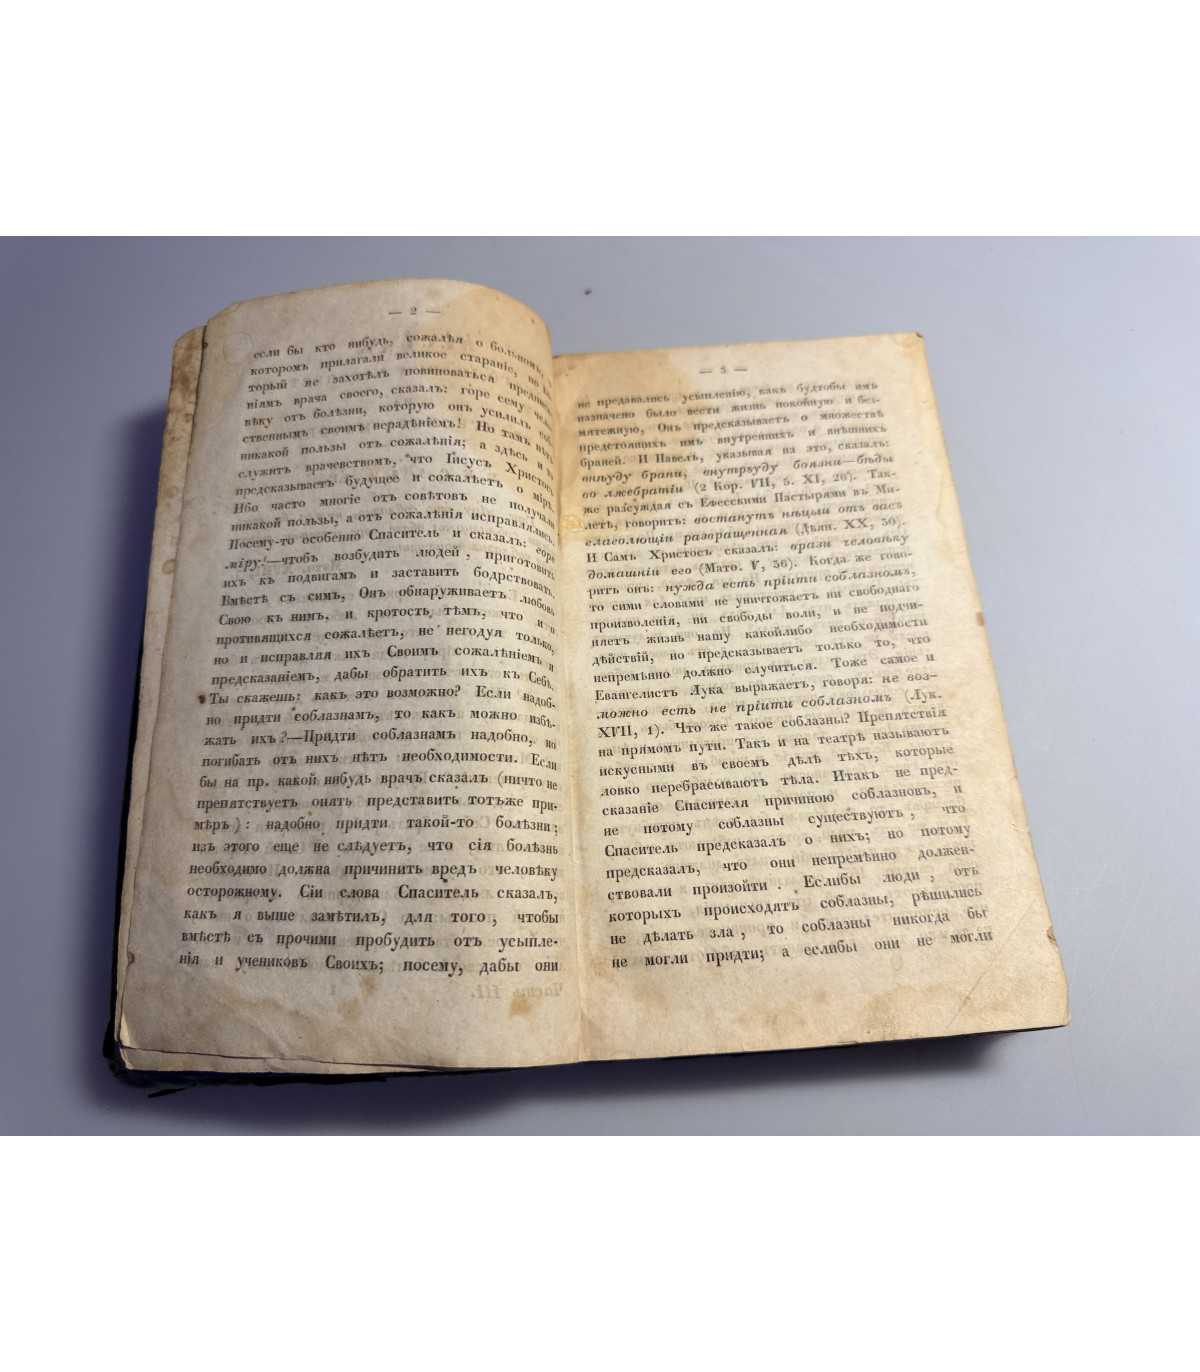 — 2 —
если бы кто нибудь, сожалѣя о больномъ, о
которомъ прилагали великое стараніе, но ко-
торый не захотѣлъ повиноваться предписа-
ніямъ врача своего, сказалъ: горе сему чело-
вѣку отъ болѣзни, которую онъ усилилъ соб-
ственнымъ своимъ нерадѣніемъ! Но тамъ нѣтъ
никакой пользы отъ сожалѣнія; а здѣсь и то
служитъ врачевствомъ, что Іисусъ Христосъ
предсказываетъ будущее и сожалѣетъ о мірѣ.
Ибо часто многіе отъ совѣтовъ не получали
никакой пользы, а отъ сожалѣнія исправлялись.
Посему-то особенно Спаситель и сказалъ: горе
міру!—чтобъ возбудить людей, приготовить
ихъ къ подвигамъ и заставить бодрствовать.
Вмѣстѣ съ симъ, Онъ обнаруживаетъ любовь
Свою къ нимъ, и кротость тѣмъ, что и о
противящихся сожалѣетъ, не негодуя только,
но и исправляя ихъ Своимъ сожалѣніемъ и
предсказаніемъ, дабы обратить ихъ къ Себѣ.
Ты скажешь: какъ это возможно? Если надоб-
но придти соблазнамъ, то какъ можно избѣ-
жать ихъ?—Придти соблазнамъ надобно, но
погибать отъ нихъ нѣтъ необходимости. Если
бы на пр. какой нибудь врачъ сказалъ (ничто не
препятствуетъ опять представить тотъже при-
мѣръ): надобно придти такой-то болѣзни;
изъ этого еще не слѣдуетъ, что сія болѣзнь
необходимо должна причинить вредъ человѣку
осторожному. Сіи слова Спаситель сказалъ,
какъ я выше замѣтилъ, для того, чтобы
вмѣстѣ съ прочими пробудить отъ усыпле-
нія и учениковъ Своихъ; посему, дабы они
— 3 —
не предавались усыпленію, какъ будтобы имъ
назначено было вести жизнь покойную и без-
мятежную, Онъ предсказываетъ о множествѣ
предстоящихъ имъ внутреннихъ и внѣшнихъ
браней. И Павелъ, указывая на это, сказалъ:
внѣуду брани, внутрьуду боязни—бѣды
во лжебратіи (2 Кор. VII, 5. XI, 26). Так-
же разсуждая съ Ефесскими Пастырями въ Ми-
летѣ, говоритъ: востанутъ нѣцыи отъ васъ
глаголющіи развращенная (Дѣян. XX, 30).
И Самъ Христосъ сказалъ: врази человѣку
домашніи его (Матѳ. V, 36). Когда же гово-
ритъ онъ: нужда есть пріити соблазномъ,
то сими словами не уничтожаетъ ни свободнаго
произволенія, ни свободы воли, и не подчи-
няетъ жизнь нашу какойлибо необходимости
дѣйствій, но предсказываетъ только то, что
непремѣнно должно случиться. Тоже самое и
Евангелистъ Лука выражаетъ, говоря: не воз-
можно есть не пріити соблазномъ (Лук.
XVII, 1). Что же такое соблазны? Препятствія
на прямомъ пути. Такъ и на театрѣ называютъ
искусными въ своемъ дѣлѣ тѣхъ, которые
ловко перебрасываютъ тѣла. Итакъ не пред-
сказаніе Спасителя причиною соблазновъ, и
не потому соблазны существуютъ, что
Спаситель предсказалъ о нихъ; но потому
предсказалъ, что они непремѣнно должен-
ствовали произойти. Еслибы люди, отъ
которыхъ происходятъ соблазны, рѣшились
не дѣлать зла, то соблазны никогда бы
не могли придти; а еслибы они не могли